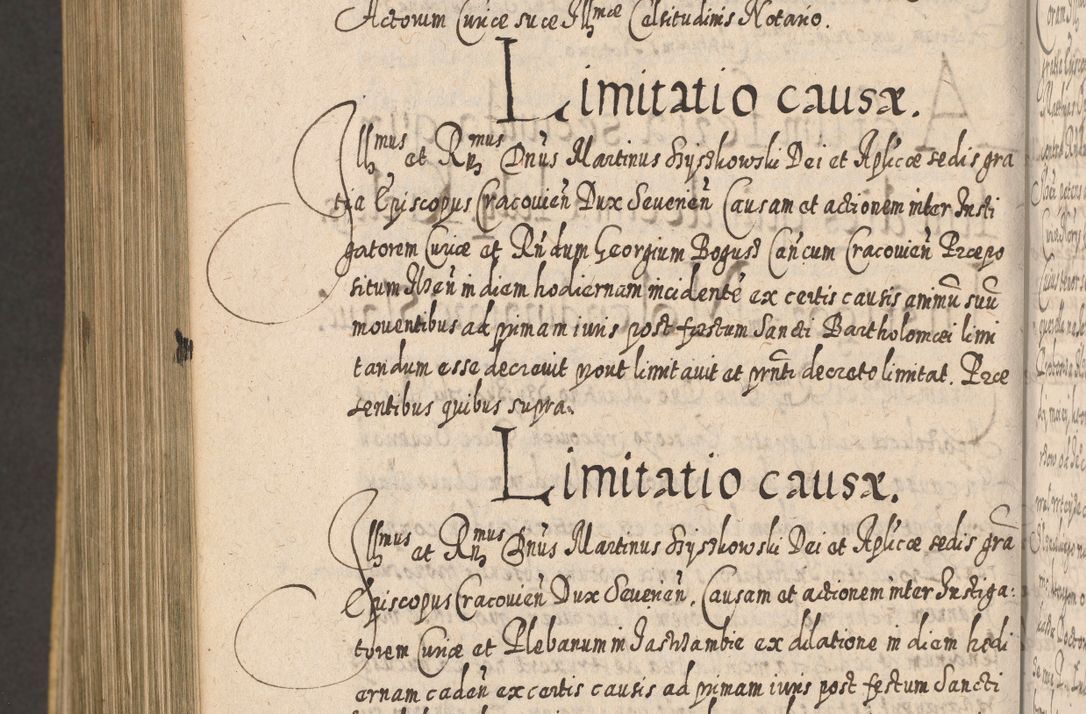 Actorum Curiæ suæ Illmæ Celsitudinis Notario.
Limitatio causæ.
Illmus et Rmus Dnus Martinus Szyszkowski Dei et Aplicæ sedis gra
tia Episcopus Cracovień Dux Severień Causam et actionem inter Insti
gatorem Curiæ et Rńdum Georgium Bogusz Cancum Cracovień Præpo
situm in diem hodiernam incidente ex certis causis animũ suũ
moventibus ad primam iuris post festum Sancti Bartholomæi limi
tandum esse decrevit prout limitavit et pñti decreto limitat. Præ
sentibus quibus supra.
Limitatio causæ.
Illmus et Rmus Dnus Martinus Szyszkowski Dei et Aplicæ sedis grã
Episcopus Cracovień Dux Severień. Causam et actionem inter Instiga:
torem Curiæ et Plebanum in ex dilatione in diem hodi
ernam cadeń ex certis causis ad primam iuris post festum Sancti